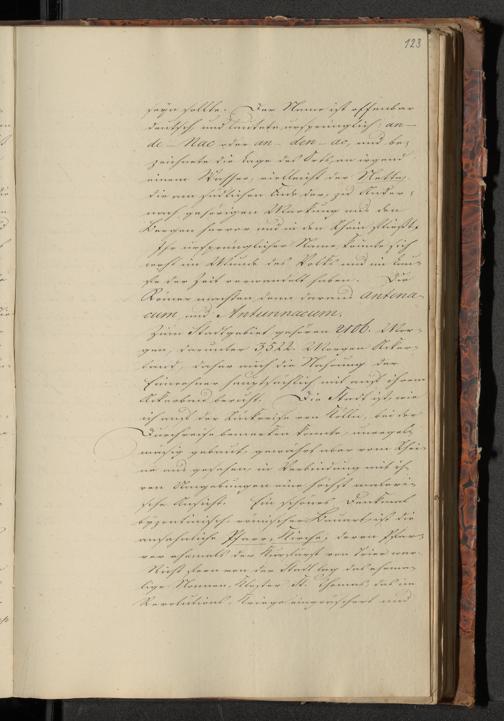 123
seyn sollte. Der Name ist offenbar
deutsch und lautete ursprünglich, an-
de-Nac oder an-den-ac, und be-
zeichnete die Lage des Orts, an irgend
einem Wasser, vielleicht der Nette,
die am südlichen Ende der, zu Ander-
nach gehörigen Markung aus den
Bergen hervor und in den Rhein fließt.
Ihr ursprünglicher Name konnte sich
wohl im Munde des Volks und im Lau-
fe der Zeit verwandelt haben. Die
Römer machten dann daraus Antena-
cum und Antunnacum.
Zum Stadtgebiet gehören Mor-
gen, darunter 3,522 Morgen Acker-
land, daher auch die Nahrung der
Einwohner hauptsächlich mit auf ihrem
Ackerbau beruht. Die Stadt ist, wie
ich auf der Rückreise von Kölln, bei der
Durchreise bemerken konnte, unregel-
mäsig gebaut, gewährt aber vom Rhei-
ne aus gesehen, in Verbindung mit ih-
ren Umgebungen eine höchst maleri-
sche Ansicht. Ein schönes Denkmal
byzantinisch-römischer Bauart, ist die
ansehnliche Pfarr-Kirche, deren Pfar-
rer ehemals der Kurfürst von Trier war.
Nicht fern von der Stadt lag das ehema-
lige Nonnen-Kloster St. Thomas, das im
Revolutions-Kriege eingeäschert und